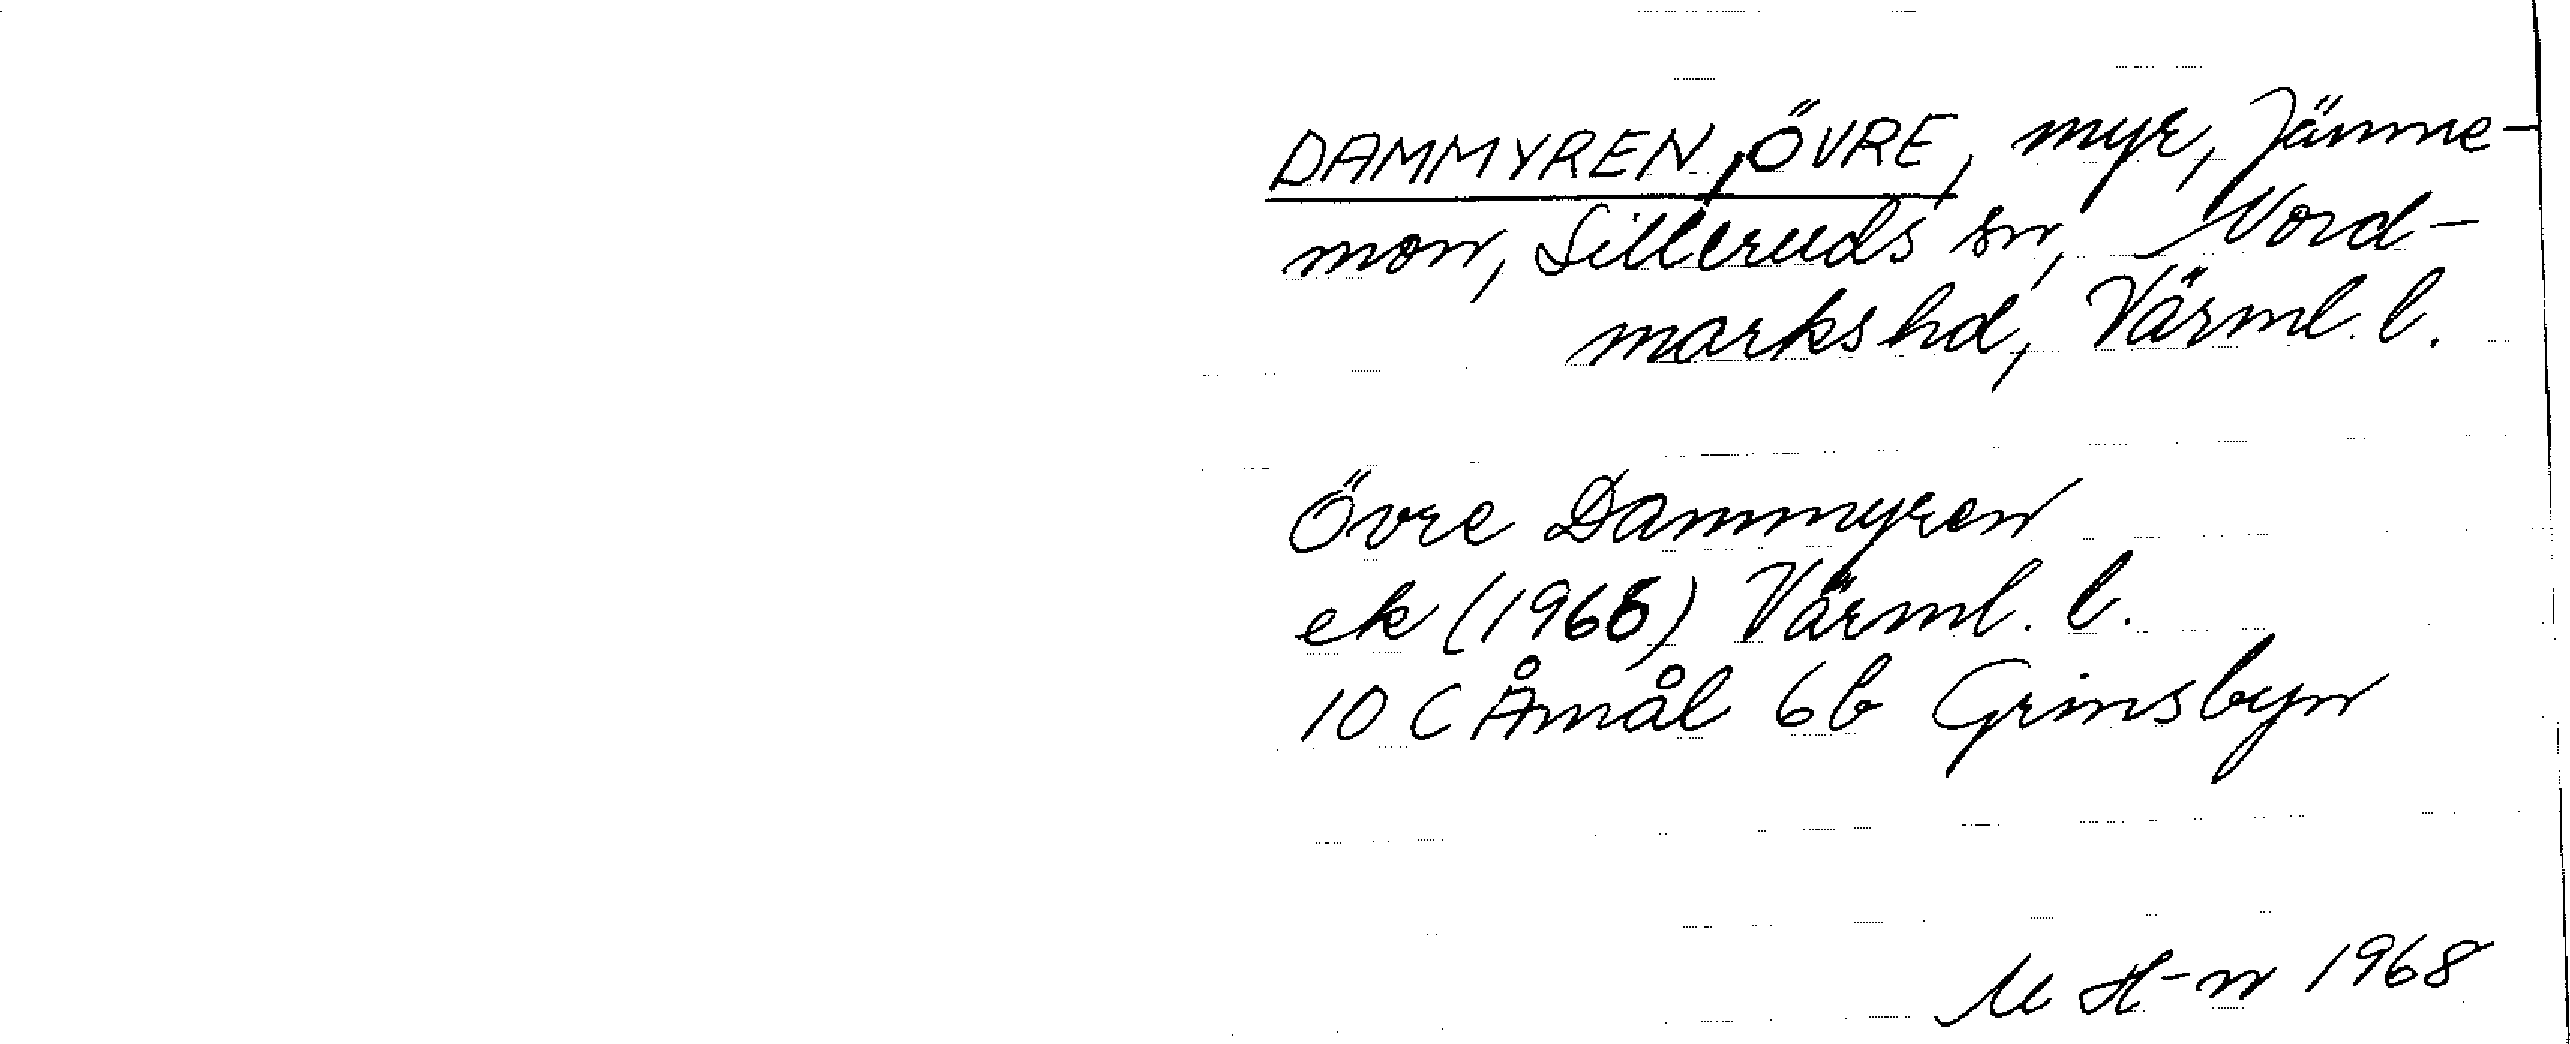 DAMMYREN, ÖVRE, myr, Jänne-
mon, Silleruds sn, Nord-
markshd, Värml. l.
Övre Dammyren
ek (1966) Värml. l.
10 C Åmål 6b Grinsbyn
M H-n 1968